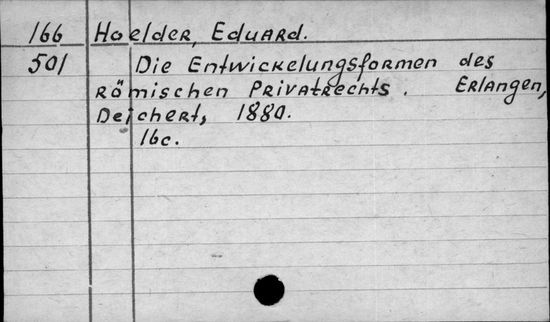 166 Hoelder, Eduard.
501 Die Entwickelungsformen des
Römischen Privatrechts. Erlangen,
Deichert, 1880.
16c.